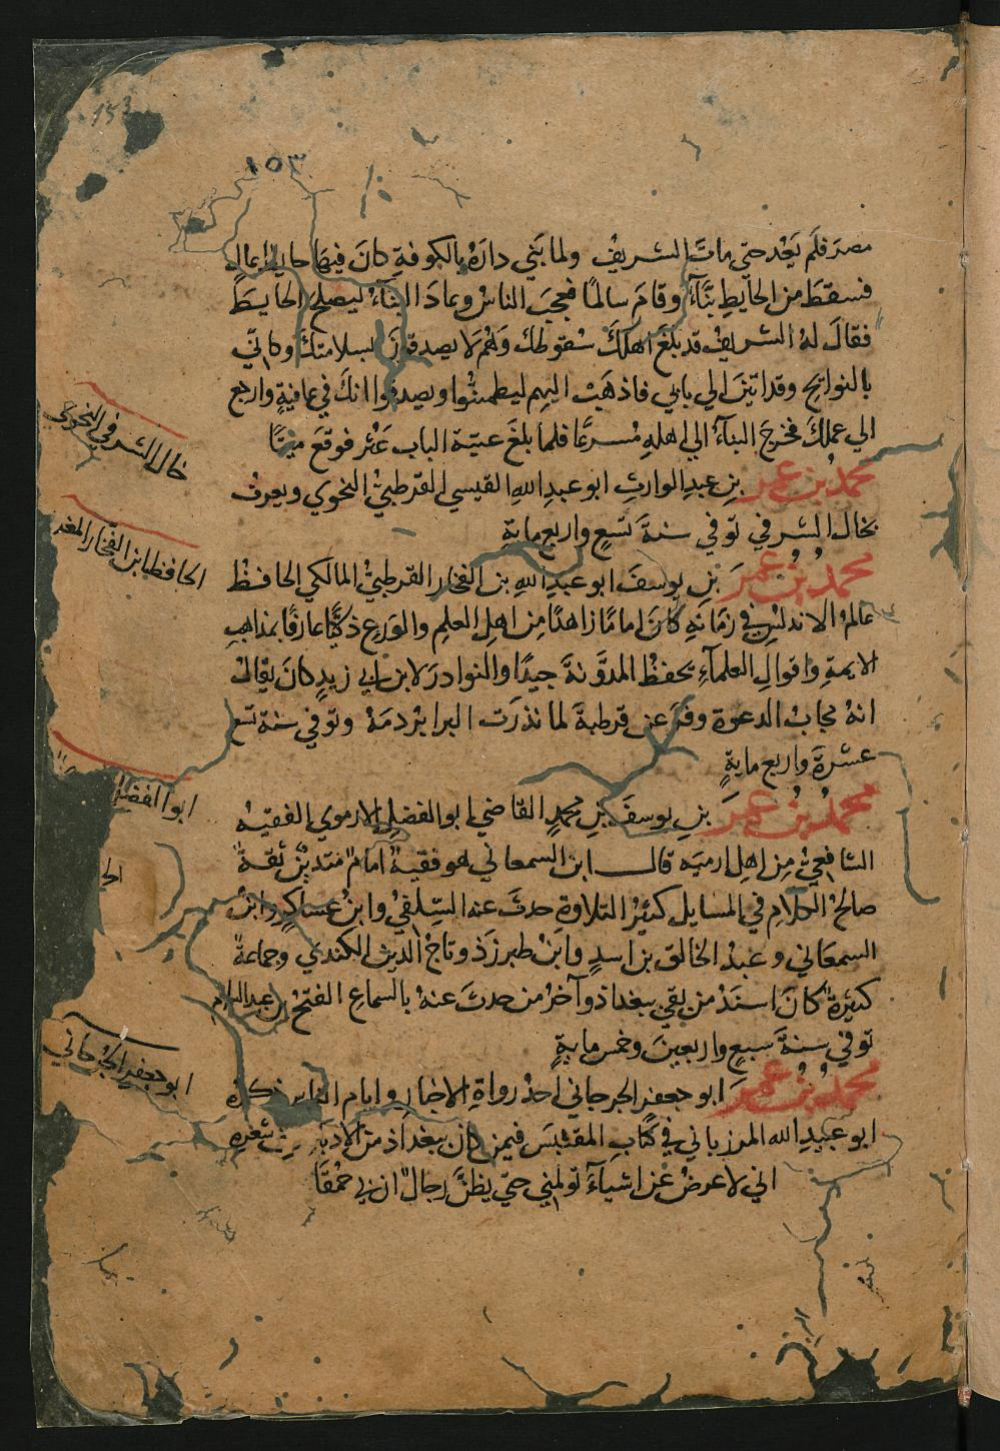 153
١٥٣
مصرَ فلَم يَجْد حتي ماتَ الشريفُ ولما بَني دارَهُ بالكوفةِ كانَ فيها حايط عال
فسقطَ من الحايطِ بنَّآءٌ وقامَ سالمًا فعجبَ الناسُ وعادَ البنآءُ ليصلح الحايطَ
فقالَ لهُ الشريفُ قد بلغَ اهلكَ سُقوطكَ وهُم لا يصدقونَ بسلامتكَ وكانّي
بالنوايح وقد اتينَ الي بابي فاذهَبْ اليهم ليطمئنُوا ويصدقوا انكَ في عافيةٍ وارجع
الي عملكَ فخرجَ البنآءُ الي اهلهِ مُسرعًا فلما بلغَ عتبة الباب عَثر فوقعَ ميتًا
محمدُ بن عمرَ بنِ عبدِ الوارثِ ابو عبدِ اللهِ القيسي القرطبيُّ النحوي ويعرفُ
بخال الشرفي توفي سنةَ تسعٍ واربع مايةٍ
محمدُ بنُ عمرَ بنِ يوسفَ ابو عبدِ اللهِ بن الفخار القرطبيُّ المالكي الحافظُ
عالمُ الاندلسِ في زمَانهِ كانَ امامًا زاهدًا مِن اهلِ العلمِ والوَرَعِ ذكيًّا عارفًا بمذاهبِ
الايمةِ واقوالِ العلمآءِ يحفظُ المدوَّنةَ جيدًا والنوادرَ لابن ابي زيدٍ كانَ يقالُ
انهُ مجابُ الدعوة وفرَّ عن قرطبةَ لما نذرَت البرابرُ دمَهُ وتوفي سنة تسع
عشرةَ واربع مايةٍ
محمدُ بنُ عمرَ بنِ يوسفَ بنِ محمدٍ القاضي ابو الفضلِ الارموي الفقيهُ
الشافعيُّ مِن اهلِ ارميه قال ابن السمعاني هو فقيهٌ امامٌ متديّنٌ ثقةٌ
صالحُ الكلامِ في المسايل كثيرُ التلاوةِ حدثَ عنه السِّلفيُّ وابنُ عساكرٍ وابنُ
السمعَاني وعبدُ الخالق بن اسدٍ وابنُ طبرزَذ وتاجُ الدينِ الكندي وجماعةٌ
كثيرةٌ كانَ اسندَ من بقي ببغداذ وآخرُ من حدثَ عنهُ بالسماعِ الفتحُ بن عبد السلام
توفي سنةَ سبعٍ واربعينَ وخمس مايةٍ
محمدُ بنُ عمرَ ابو جعفرٍ الجرجاني احدُ رواةِ الاخبار وايام الناس ذكرهُ
ابو عبيدِ الله المرزباني في كتابِ المقتبَس فيمن كان ببغداذ من الادباء مِن شعرهِ
اني لاعرضُ عن اشياءَ تولمني حتي يظنَّ رجالٌ ان بي حمْقًا
خال الشرفي النحوي
الحافظ ابن الفخار
ابو الفضل
ابو جعفر الجرجاني